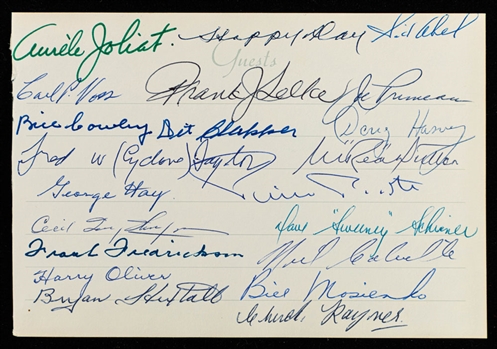 Aurèle Joliat. Happy Day Sid Abel
Guests
Carl P. Voss Frank J Selke J Primeau
Bill Cowley Dit Clapper Doug Harvey
Fred W (Cyclone) Taylor
George Hay
Cecil Dave "Sweeney" Schriner
Frank Fredrickson Neil Colville
Harry Oliver
Bryan Hextall Bill Mosienko
Chuck Rayner